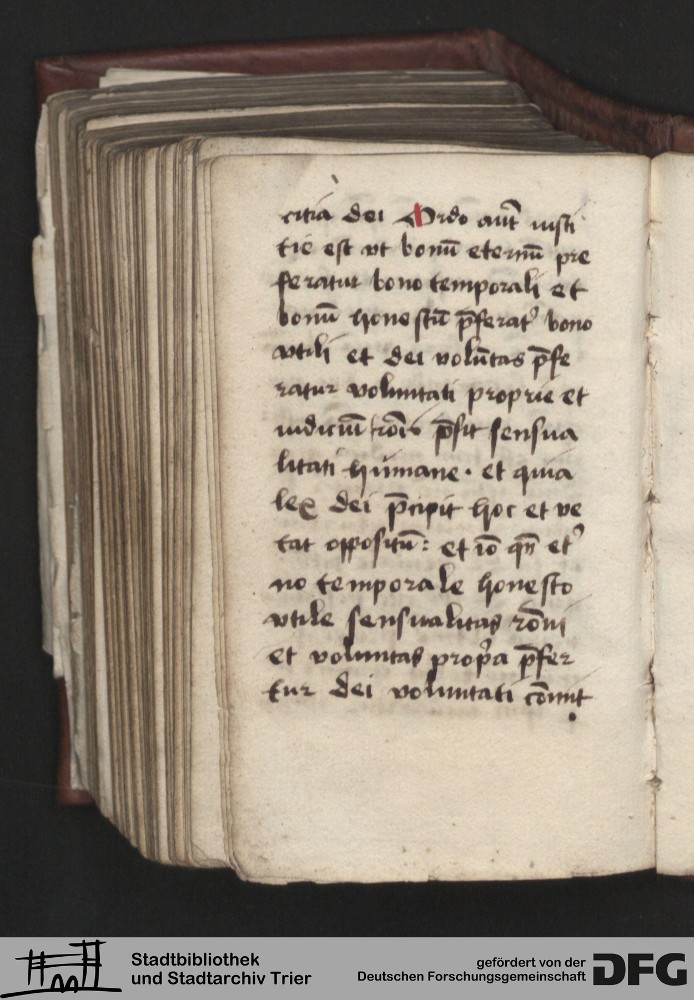 citia dei Ordo aut̄ iusti
tie est vt bonū eternū pre
feratur bono temporali et
bonū honestū p̄ferat᷑ bono
vtili et dei volūtas p̄fe
ratur voluntati proprie et
iudiciū rōis p̄sit sensua
litati humane · et quia
lex dei p̄cipit hoc et ve
tat oppositū : et iō qn̄ et᷑
no temporale honesto
vtile sensualitas rōni
et voluntas prop̄a p̄fer
tur dei voluntati
Stadtbibliothek
und Stadtarchiv Trier
gefördert von der
Deutschen Forschungsgemeinschaft
DFG